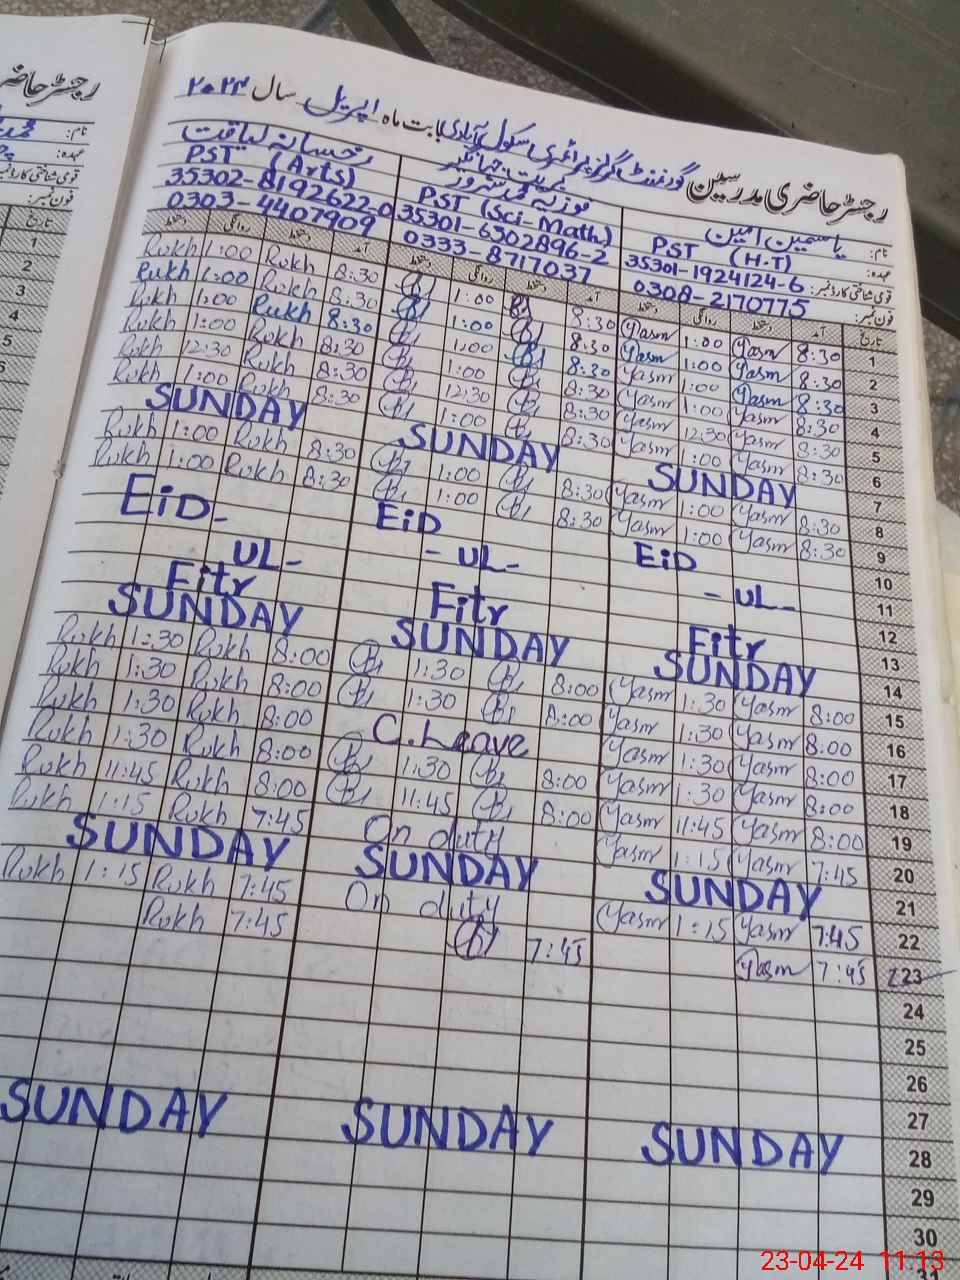 رجسٹر حاضری مدرسین گورنمنٹ گرلز پرائمری اسکول آبادی بابت ماہ اپریل سال ۲۰۲۴
رجسٹر حاضری
نام: یاسمین امین
رخسانہ لیاقت
عہدہ: PST (H.T)
PST (Sci-Math)
PST (Arts)
قومی شناختی کارڈ نمبر: 35301-1924124-6
35301-6502896-2
35302-8192622-0
فون نمبر: 0308-2170775
0333-8717037
0303-4407909
تاریخ آمد دستخط روانگی دستخط آمد دستخط روانگی دستخط آمد دستخط روانگی دستخط
1 8:30 Yasm 1:00 Yasm 8:30 1:00 8:30 Rukh 1:00 Rukh
2 8:30 Yasm 1:00 Yasm 8:30 1:00 8:30 Rukh 1:00 Rukh
3 8:30 Yasm 1:00 Yasm 8:30 1:00 8:30 Rukh 1:00 Rukh
4 8:30 Yasm 1:00 Yasm 8:30 1:00 8:30 Rukh 1:00 Rukh
5 8:30 Yasm 12:30 Yasm 8:30 12:30 8:30 Rukh 12:30 Rukh
6 8:30 Yasm 1:00 Yasm 8:30 1:00 8:30 Rukh 1:00 Rukh
7 SUNDAY SUNDAY SUNDAY
8 8:30 Yasm 1:00 Yasm 8:30 1:00 8:30 Rukh 1:00 Rukh
9 8:30 Yasm 1:00 Yasm 8:30 1:00 8:30 Rukh 1:00 Rukh
10 EiD EiD EiD-
11 - UL- - UL- UL-
12
13 Fitr Fitr Fitr
14 SUNDAY SUNDAY SUNDAY
15 8:00 Yasm 1:30 Yasm 8:00 1:30 8:00 Rukh 1:30 Rukh
16 8:00 Yasm 1:30 Yasm 8:00 1:30 8:00 Rukh 1:30 Rukh
17 8:00 Yasm 1:30 Yasm C.Leave 8:00 Rukh 1:30 Rukh
18 8:00 Yasm 1:30 Yasm 8:00 1:30 8:00 Rukh 1:30 Rukh
19 8:00 Yasm 11:45 Yasm 8:00 11:45 8:00 Rukh 11:45 Rukh
20 7:45 Yasm 1:15 Yasm On duty 7:45 Rukh 1:15 Rukh
21 SUNDAY SUNDAY SUNDAY
22 7:45 Yasm 1:15 Yasm On duty 7:45 Rukh 1:15 Rukh
23 7:45 Yasm 7:45 7:45 Rukh
24
25
26
27
28 SUNDAY SUNDAY SUNDAY
29
30
31
23-04-24 11:13